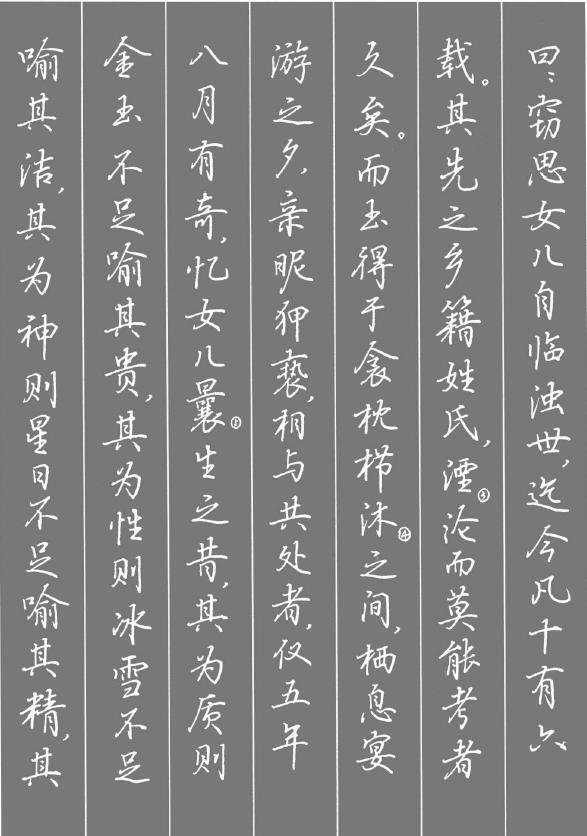 曰：窃思女儿自临浊世，迄今凡十有六
载。其先之乡籍姓氏，湮③沦而莫能考者
久矣。而玉得于衾枕栉沐④之间，栖息宴
游之夕，亲昵狎亵，相与共处者，仅五年
八月有奇，忆女儿曩⑤生之昔，其为质则
金玉不足喻其贵，其为性则冰雪不足
喻其洁，其为神则星日不足喻其精，其